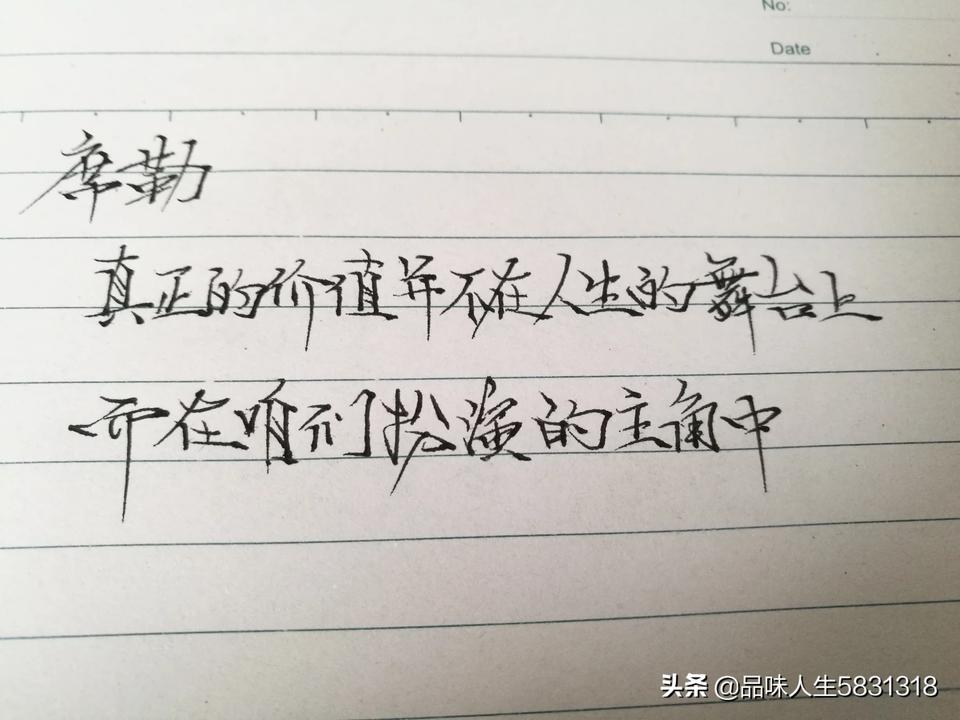 No:
Date
席勒
真正的价值并不在人生的舞台上
而在咱们扮演的主角中
头条 @品味人生5831318